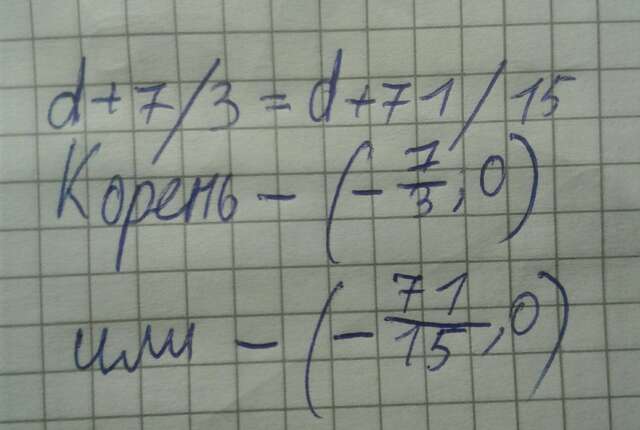 d+7/3 = d+71/15
Корень - (-7/3; 0)
или - (-71/15, 0)